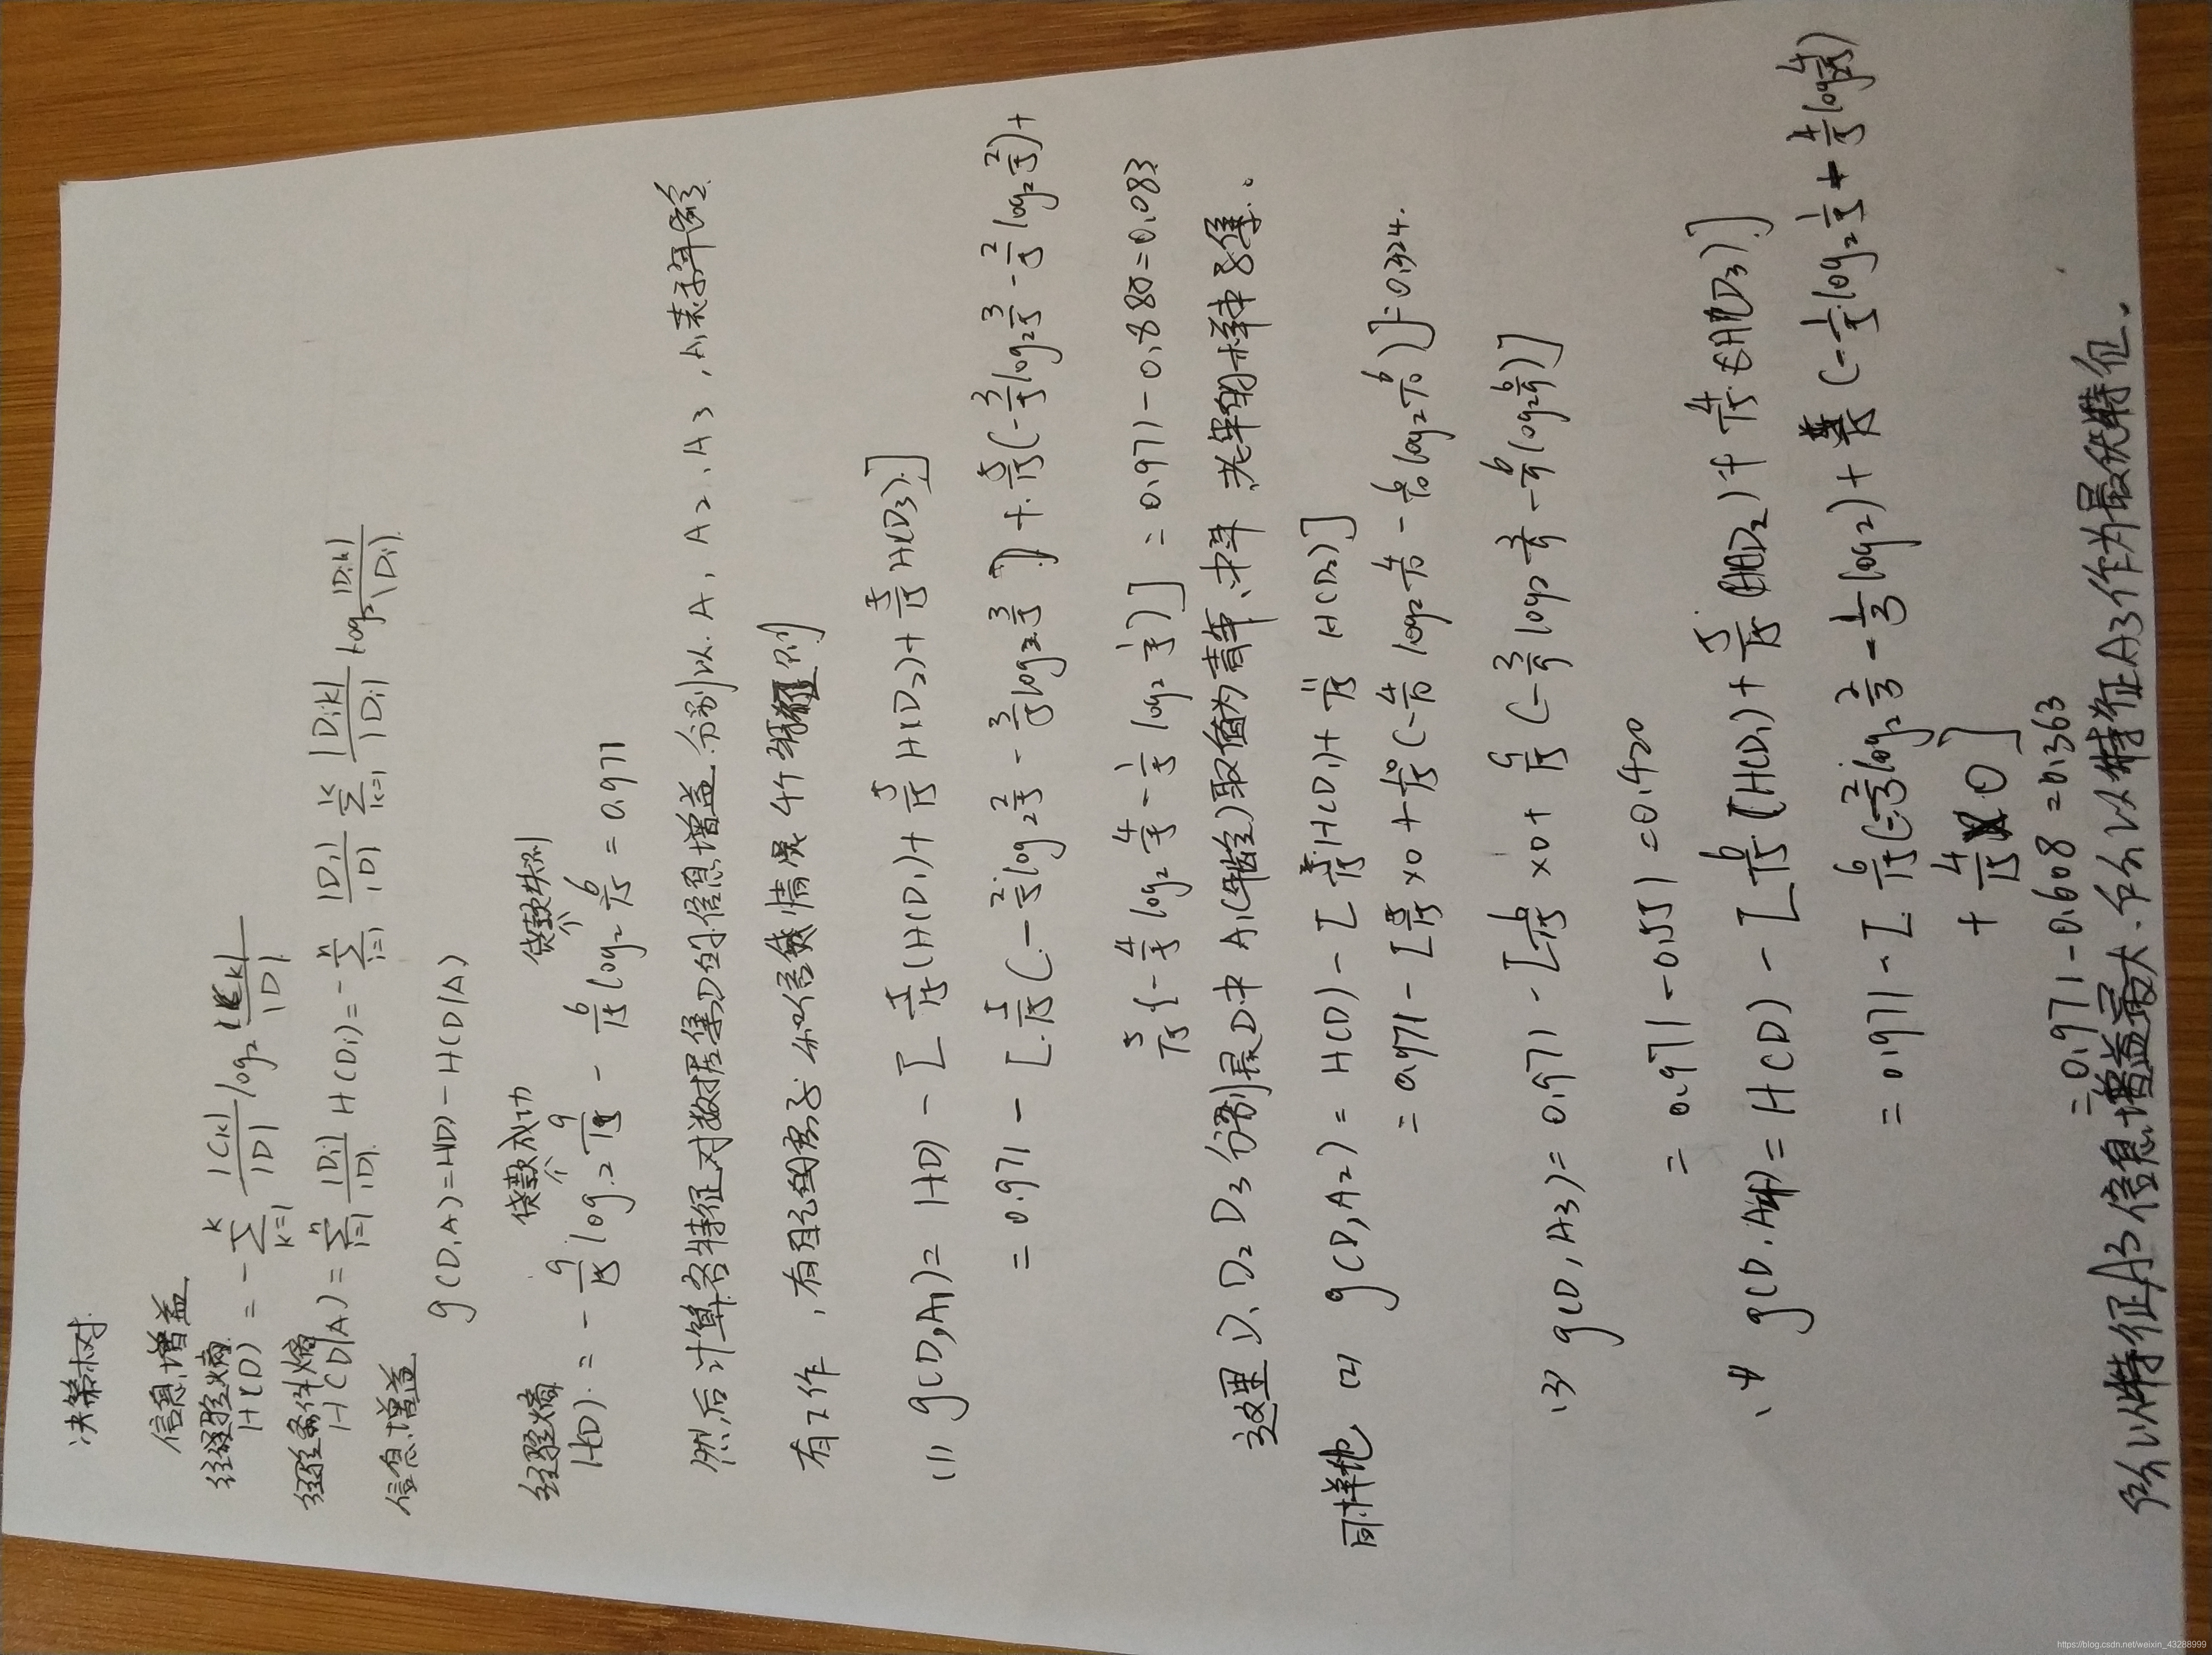 决策树
信息增益
经验熵
H(D) = -∑_{k=1}^{K} |Ck|/|D| log₂ |Ck|/|D|
经验条件熵
H(D|A) = ∑_{i=1}^{n} |Di|/|D| H(Di) = -∑_{i=1}^{n} |Di|/|D| ∑_{k=1}^{K} |Dik|/|Di| log₂ |Dik|/|Di|
信息增益
g(D,A)=H(D)-H(D|A)
贷款成功 贷款失败
经验熵
H(D) = -9/15 log₂ 9/15 - 6/15 log₂ 6/15 = 0.971
然后计算各特征对数据集D的信息增益.分别以A₁,A₂,A₃,A₁表示年龄
有工作,有自己的房子 和信贷情况4个 则
(1) g(D,A₁)= H(D) - [5/15(H(D₁)+5/15 H(D₂)+5/15 H(D₃)]
= 0.971 - [5/15(-2/5 log₂ 2/5 - 3/5 log₂ 3/5)+5/15(-3/5 log₂ 3/5 - 2/5 log₂ 2/5)+
5/15{-4/5 log₂ 4/5 - 1/5 log₂ 1/5)] = 0.971 - 0.888=0.083
这里D₁、D₂ D₃分别是D中A₁(年龄)取值为青年、中年、老年的样本子集。
同样地 (2) g(D,A₂) = H(D) - [5/15 H(D₁)+10/15 H(D₂)]
= 0.971 - [5/15 ×0 + 10/15(-4/10 log₂ 4/10 - 6/10 log₂ 6/10)]=0.324.
(3) g(D,A₃)= 0.971 - [6/15 ×0+ 9/15(-3/9 log₂ 3/9 - 6/9(log₂ 6/9)]
= 0.971 -0.551 =0.420
(4 g(D,A4)= H(D) - [6/15(H(D₁)+5/15 H(D₂)+4/15 H(D₃)]
= 0.971 - [6/15(-2/3 log₂ 2/3 - 1/3 log₂)+ (-1/5 log₂ 1/5 + 4/5 log₂ 4/5)
+ 4/15 ×0]
=0.971-0.608 =0.363
所以特征A3信息增益最大.所以特征A3作为最优特征.
https://blog.csdn.net/weixin_43288999